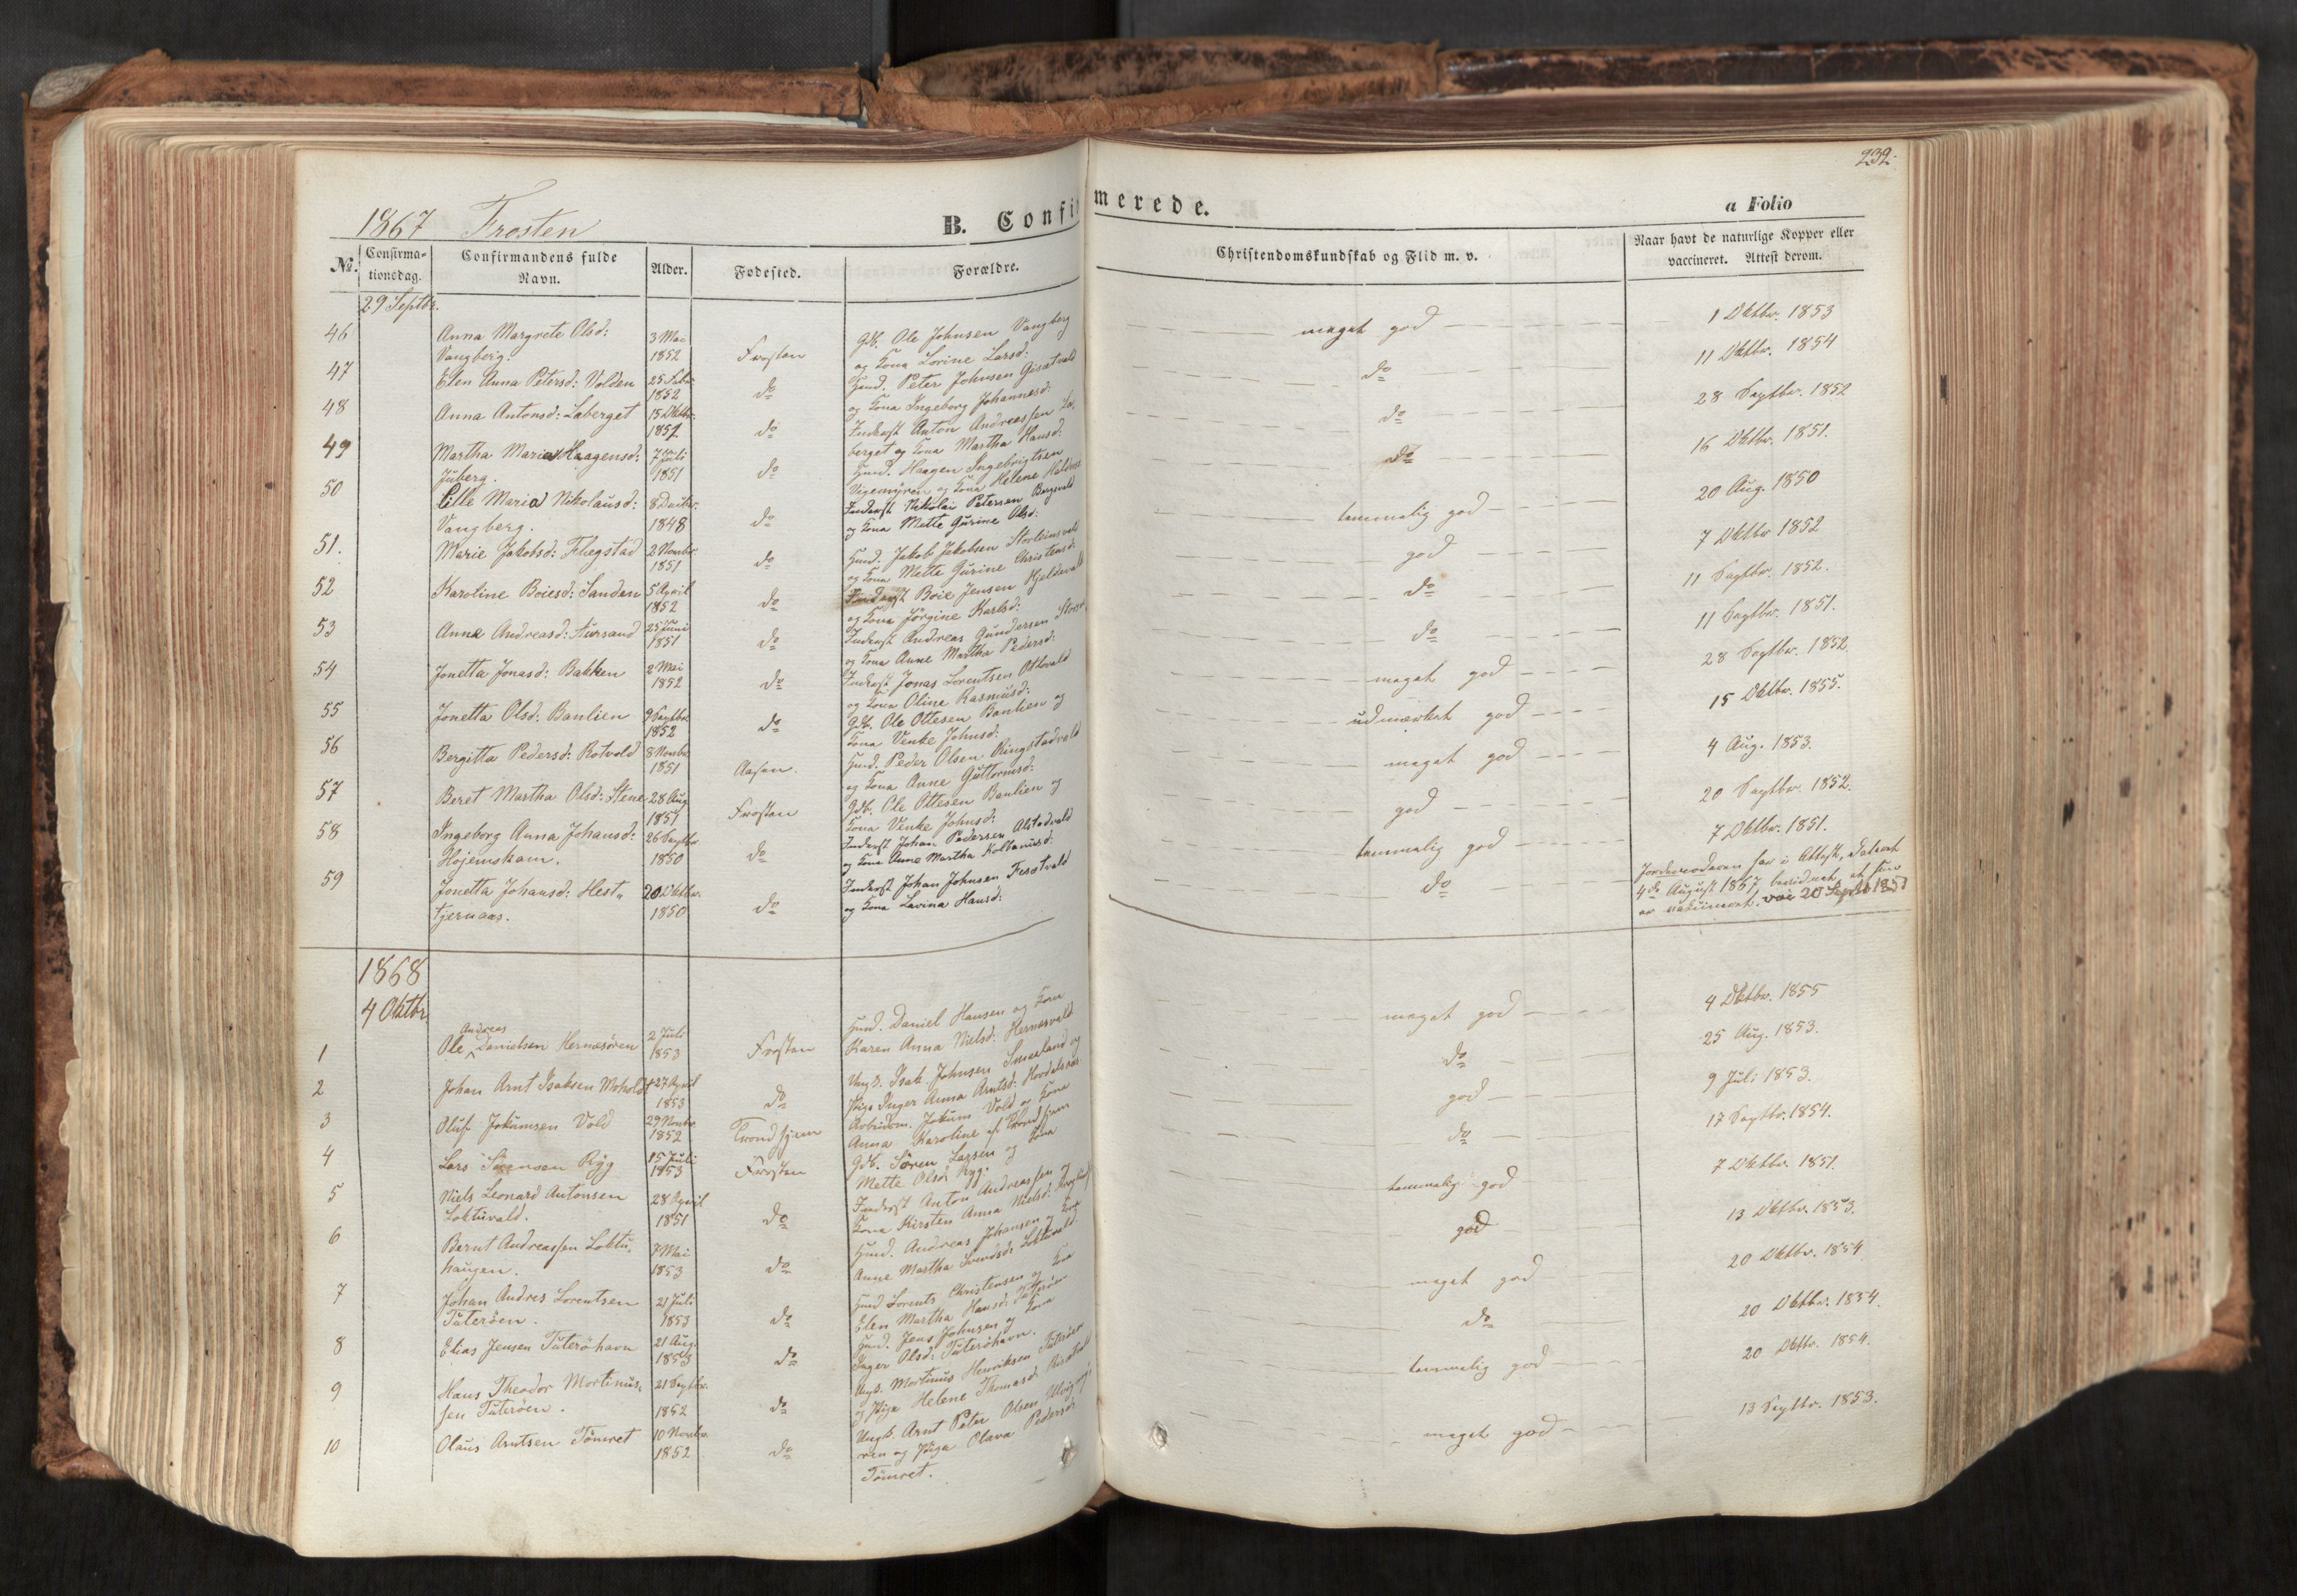 232.
1867 Frosten
B. Confirmerede.
a Folio
No.
Confirma-
tionsdag.
Confirmandens fulde
Navn.
Alder.
Fødested.
Forældre.
Christendomskundskab og Flid m. v.
Naar havt de naturlige Kopper eller
vaccineret. Attest derom.
29 Septbr.
46 Anna Margrete Olsd: 3 Mai Gdb. Ole Johnsen Vangberg meget god 1 Oktbr. 1853
Vangberg. 1852 Frosten og Kona Lorine Larsd:
47 Elen Anna Petersd: Volden 25 Febr. Husd. Peter Johnsen do 11 Oktbr. 1854
1852 do og Kona Ingeborg Johannesd:
48 Anna Antonsd: Laberget 15 Oktbr. Inderst Anton Andreassen La, do 28 Septbr. 1852
1851 do berget og Kona Martha Hansd:
49 Martha Maria Haagensd: 7 Juli Husd. Haagen Ingebrigtsen do 16 Oktbr. 1851.
Juberg. 1851 do og Kona Helene
50 Lille Maria Nikolausd: 8 Decbr. Inderst Nikolai Petersen temmelig god 20 Aug. 1850
Vangberg. 1848 do og Kona Mette Gurine Olsd:
51. Marie Jakobsd: Flegstad 2 Novbr. Husd. Jakob Jakobsen god 7 Oktbr 1852
1851 do og Kona Mette Gurine Christensd:
52 Karoline Boiesd: Sanden 5 April Inderst Boie Jensen do 11 Septbr. 1852.
1852 do og Kona Jörgine Karlsd:
53 Anna Andreasd: Aursand 25 Juni Inderst Andreas Gundersen do 11 Septbr. 1851.
1851 do og Kona Anne Martha Pedersd:
54 Jonetta Jonasd: Bakken 2 Mai Inderst Jonas Lorentsen meget god 28 Septbr. 1852
1852 do og Kona Oline Rasmusd:
55 Jonetta Olsd: Banlien 9 Septbr Gdb. Ole Ottesen Banlien og udmærket god 15 Oktbr. 1855.
1852 do Kona Venke Johnsd:
56 Bergitta Pedersd: Rotvold 8 Novbr. Husd. Peder Olsen Ringstadvald meget god 4 Aug. 1853.
1851 Aasen. og Kona Anne Guttormsd:
57 Beret Martha Olsd: Stene 28 Aug Gdb. Ole Ottesen Banlien og god 20 Septbr. 1852.
1851 Frosten Kona Venke Johnsd:
58 Ingeborg Anna Johansd: 26 Septbr Inderst Johan Pedersen Alstadvald temmelig god 7 Oktbr. 1851.
Hojemskam. 1850 do og Kona Anne Martha
59 Jonetta Johansd: Hest„ 20 Oktbr. Inderst Johan Johnsen do Jordemoderen har i Attest, dateret
tjernaas. 1850 do og Kona Lavina Hansd: 4de August 1867, bevidnet, at hun
er vakcineret. 20 Septbr 1851
1868
4 Oktbr.
Andreas
1 Ole Danielsen Hernesören 2 Juli Husd. Daniel Hansen og Kona meget god 4 Oktbr. 1855
1853 Frosten Karen Anna Nielsd: Hernesvald
2 Johan Arnt Isaksen Moholdt 27 April Ungk. Isak Johnsen Smaland og do 25 Aug. 1853.
1853 do Pige Inger Anna Arntsd:
3 Oluf Jokumsen Vold 29 Novbr. Arbeidsm. Jokum Vold og Kona god 9 Juli 1853.
1852 Trondhjem Anna Karoline af Trondhjem
4 Lars Sörensen Ryg 15 Juli Gdb. Sören Larsen og Kona do 17 Septbr. 1854.
1853 Frosten Mette Olsd: Ryg.
5 Niels Leonard Antonsen 28 April Inderst Anton Andreassen og temmelig god 7 Oktbr. 1851.
Loktuvald. 1851 do Kona Kirsten Anna Nielsd:
6 Bernt Andreassen Loktu„ 7 Mai Husd. Andreas Johansen og Kona god 13 Oktbr. 1853.
haugen. 1853 do Anne Martha
7 Johan Andres Lorentsen 21 Juli Husd Lorents Christensen og Kona meget god 20 Oktbr. 1854
Tuterøen. 1853 do Elen Martha Hansd: Tuterøen
8 Elias Jensen Tuteröhavn 21 Aug. Husd. Jens Johnsen og Kona do 20 Oktbr. 1854.
1853 do Inger Olsd: Tuteröhavn.
9 Hans Theodor Mortinus„ 21 Septbr. Ungk. Mortinus Henriksen Tuterøen temmelig god 20 Oktbr. 1854.
sen Tuterøen. 1852 do og Pige Helene Thomasd:
10 Olaus Arntsen Tömret 10 Novbr. Ungk. Arnt Peter Olsen meget god 13 Septbr. 1853.
1852 do og Pige Olava Pedersd:
Tömret.